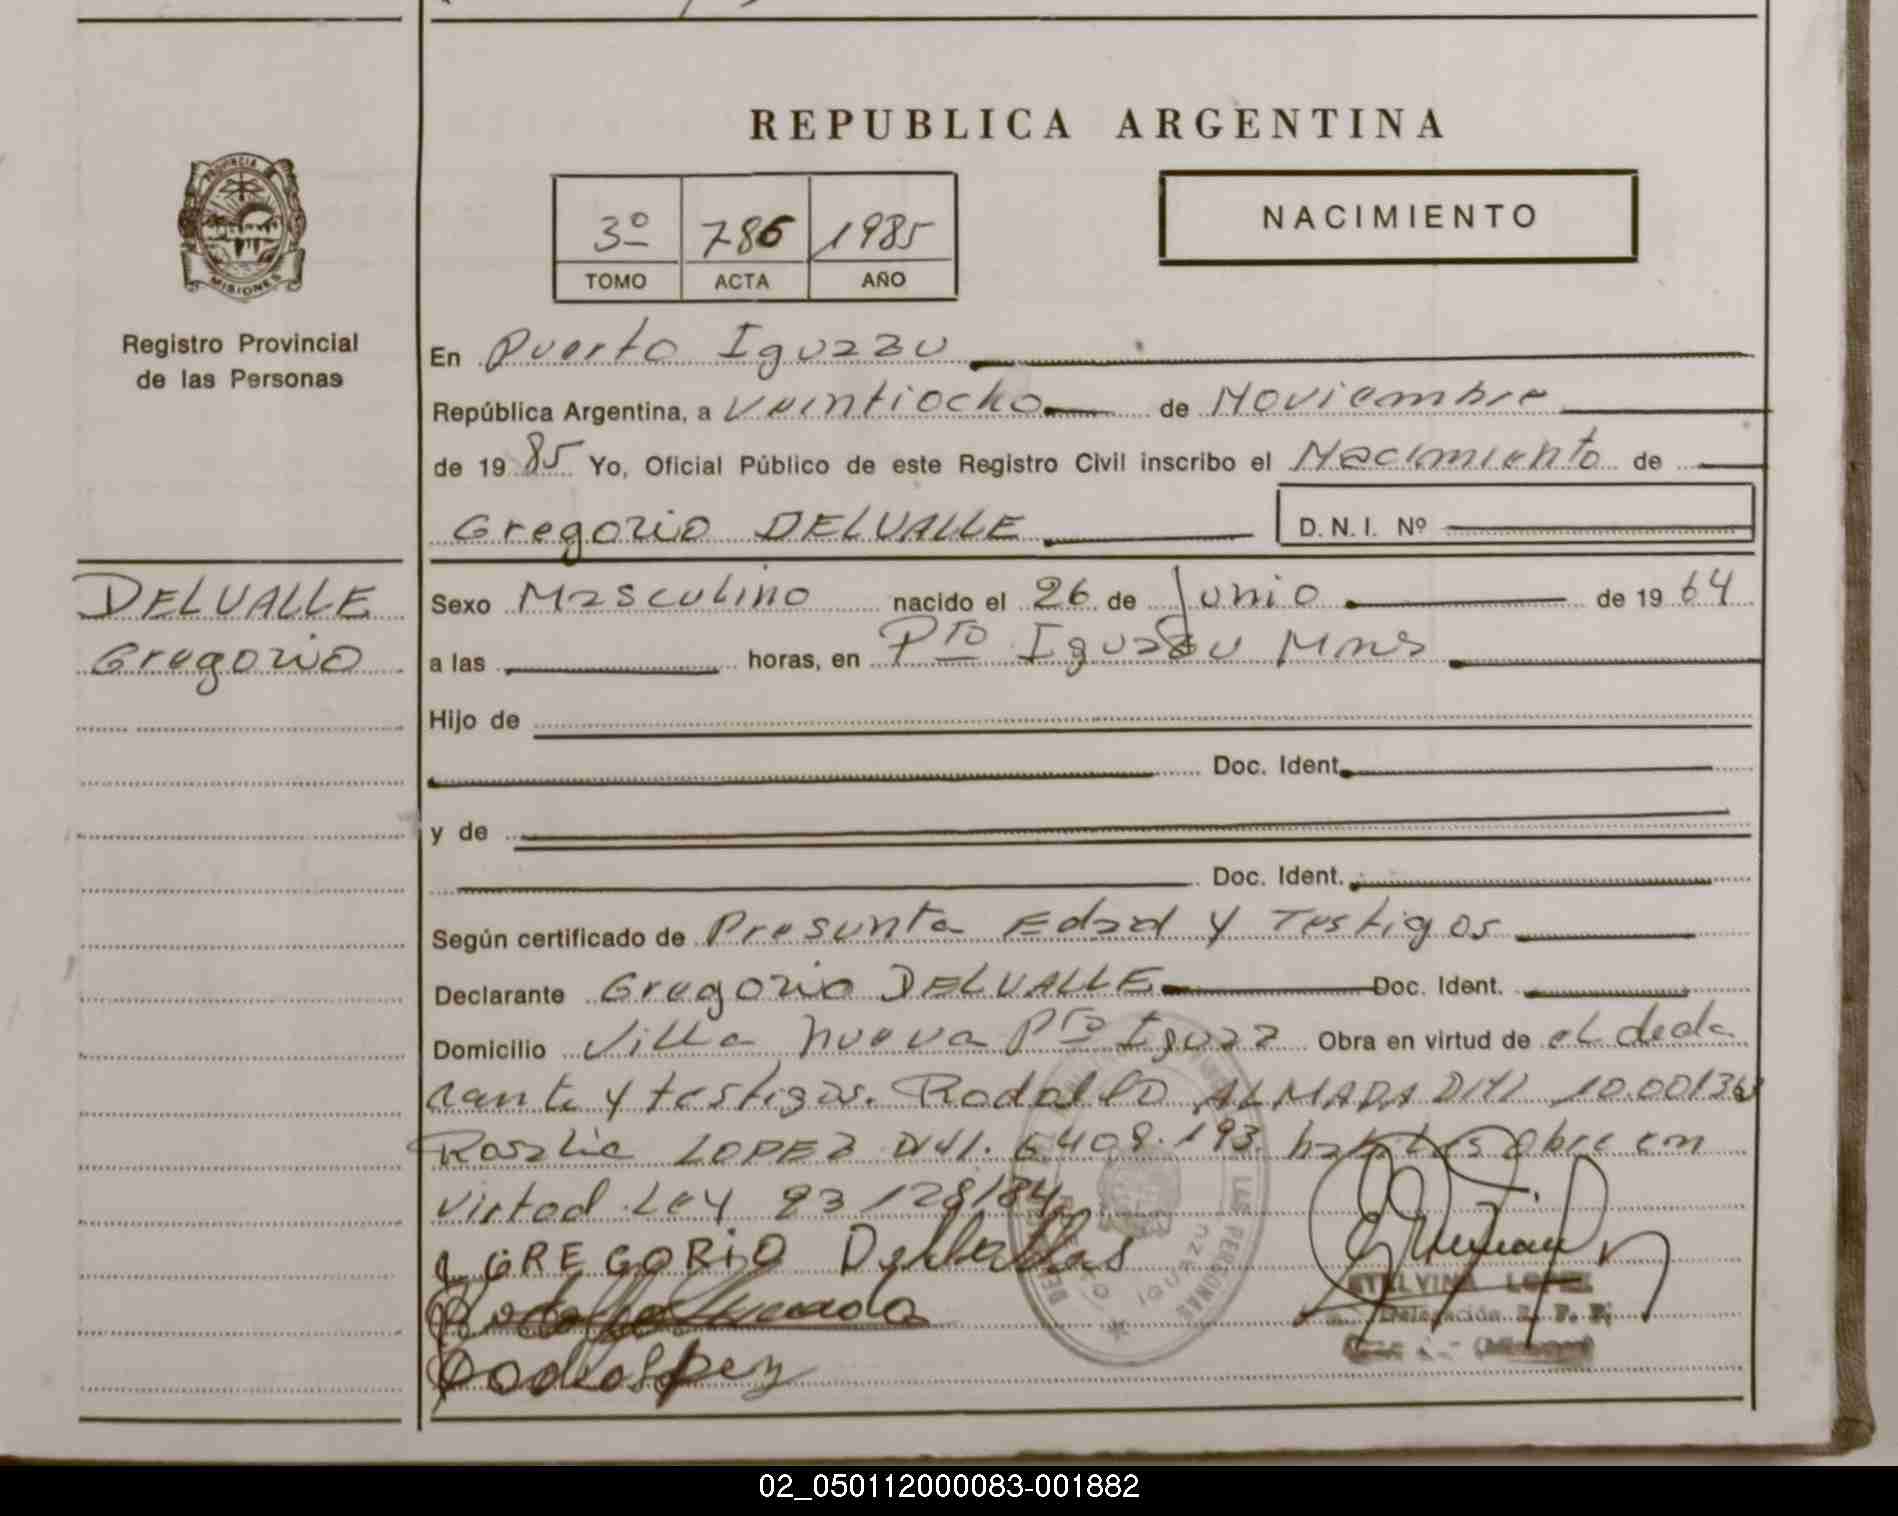 REPUBLICA ARGENTINA
PROVINCIA
MISIONES
Registro Provincial
de las Personas
3º 786 1985
TOMO ACTA AÑO
NACIMIENTO
En Puerto Iguazu
República Argentina, a Veintiocho de Noviembre
de 19 85 Yo, Oficial Público de este Registro Civil inscribo el Nacimiento de
Gregorio DELVALLE D. N. I. Nº
DELVALLE
Gregorio
Sexo Masculino nacido el 26 de Junio de 19 64
a las horas, en Pto Iguazu Mnes
Hijo de
Doc. Ident.
y de
Doc. Ident.
Según certificado de Presunta Edad y Testigos
Declarante Gregorio DELVALLE Doc. Ident.
Domicilio Villa nueva Pto Iguaz Obra en virtud de el decla
rante y testigos. Rodolfo ALMADA DNI
Rosalia LOPEZ DNI. 6408.193. obre en
virtud Ley 23128/84
GREGORIO
LAS PERSONAS
IGUAZU
ETELVINA LOPEZ
Delegación R. P. P.
(Misiones)
02_050112000083-001882